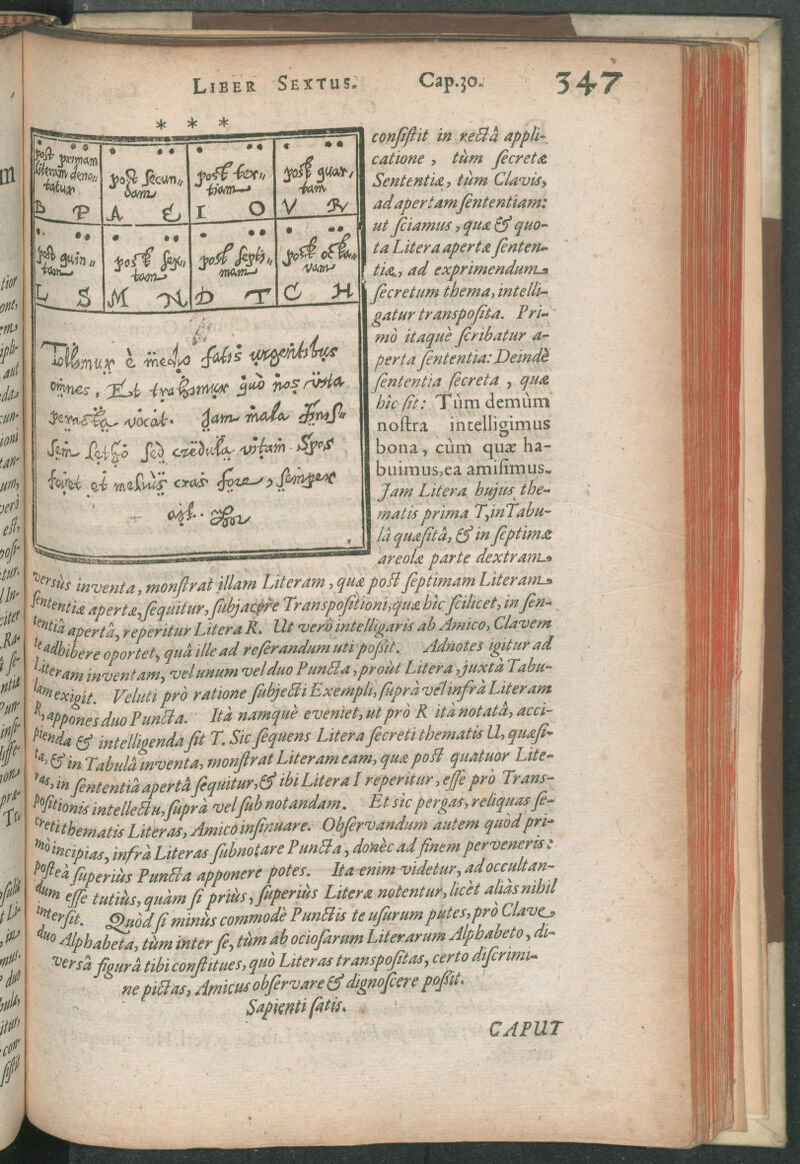 LIBER SEXTUS. Cap.30. 347
* * *
post primam literam deno=tatur
B P
post secun=dam
A E
post ter=tiam
I O
post quar=tam
V R
post quin=tam
L S
post sex=tam
M N
post septi=mam
D T
post octa=vam
C H
Tollimur è medio fatis urgentibus
omnes, Et trahimur quò nos
vocat. Jam mala
sem Letho sed credula vitam Spes
fovet et melius cras fore, semper
ait.
consistit in rectâ appli-
catione, tùm secretæ
Sententiæ, tùm Clavis,
ad apertam sententiam:
ut sciamus, quæ & quo-
ta Litera apertæ senten-
tiæ, ad exprimendum
secretum thema, intelli-
gatur transposita. Pri-
mò itaquè scribatur a-
perta sententia: Deindè
sententia secreta, quæ
hîc sit: Tùm demùm
nostra intelligimus
bona, cùm quæ ha-
buimus, ea amisimus.
Jam Litera hujus the-
matis prima T, in Tabu-
lâ quæsitâ, & in septimæ
areolæ parte dextram
versùs inventa, monstrat illam Literam, quæ post septimam Literam
sententiæ apertæ, sequitur, subjacere Transpositioni, quæ hîc scilicet, in sen-
tentiâ apertâ, reperitur Litera R. Ut verò intelligaris ab Amico, Clavem
te adhibere oportet, quâ ille ad reserandum uti possit. Adnotes igitur ad
Literam inventam, vel unum vel duo Puncta, proùt Litera, juxtà Tabu-
lam exigit. Veluti prò ratione subjecti Exempli, suprà vel infrà Literam
R, appones duo Puncta. Ità namquè eveniet, ut prò R ità notatâ, acci-
pienda & intelligenda sit T. Sic sequens Litera secreti thematis U, quæsi-
ta, & in Tabulâ inventa, monstrat Literam eam, quæ post quatuor Lite-
ras, in sententiâ apertâ sequitur, & ibi Litera I reperitur, esse prò Trans-
positionis intellectu, suprà vel sub notandam. Et sic pergas, reliquas se-
creti thematis Literas, Amico insinuare. Observandum autem quòd pri-
mò incipias, infrà Literas subnotare Puncta, donèc ad finem perveneris:
posteà superiùs Puncta apponere potes. Ita enim videtur, ad occultan-
dum esse tutiùs, quàm si priùs, superiùs Literæ notentur, licèt aliàs nihil
intersit. Quòd si minùs commodè Punctis te usurum putes, prò Clave
duo Alphabeta, tùm inter se, tùm ab ociosarum Literarum Alphabeto, di-
versâ figurâ tibi constitues, quò Literas transpositas, certo discrimi-
ne pictas, Amicus observare & dignoscere possit.
Sapienti satis.
CAPUT